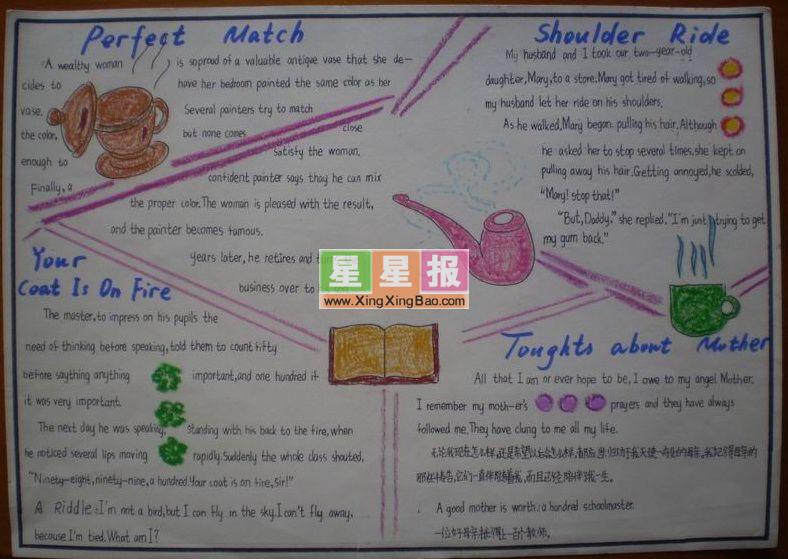 Perfect Match
A wealthy woman is soproud of a valuable antique vase that she de-
cides to have her bedroom painted the same color as her
vase. Several painters try to match
the color, but none comes close
enough to satisfy the woman.
Finally, a confident painter says thay he can mix
the proper color. The woman is pleased with the result,
and the painter becomes famous.
years later, he retires and
business over to his
Shoulder Ride
My husband and I took our two-year-old
daughter, Mary, to a store. Mary got tired of walking, so
my husband let her ride on his shoulders.
As he walked, Mary began pulling his hair. Although
he asked her to stop several times, she kept on
pulling away his hair. Getting annoyed, he scolded,
"Mary! stop that!"
"But, Daddy," she replied. "I'm just trying to get
my gum back."
星星报
www.XingXingBao.com
Your
Coat Is On Fire
The master, to impress on his pupils the
need of thinking before speaking, told them to count fifty
before saything anything important, and one hundred if
it was very important.
The next day he was speaking, standing with his back to the fire, when
he noticed several lips moving rapidly. Suddenly the whole class shouted,
"Ninety-eight, ninety-nine, a hundred. Your coat is on fire, Sir!"
A Riddle: I'm not a bird, but I can fly in the sky. I can't fly away,
because I'm tied. What am I?
Toughts about Mother
All that I am or ever hope to be, I owe to my angel Mother.
I remember my moth-er's prayers and they have always
followed me. They have clung to me all my life.
无论我现在怎么样,还是希望以后会怎么样,都应当归功于我天使一般的母亲。我记得母亲的
那些祷告,它们一直伴随着我,而且已经陪伴了我一生。
A good mother is worth a hundred schoolmaster.
一位好母亲抵得上一百个教师。